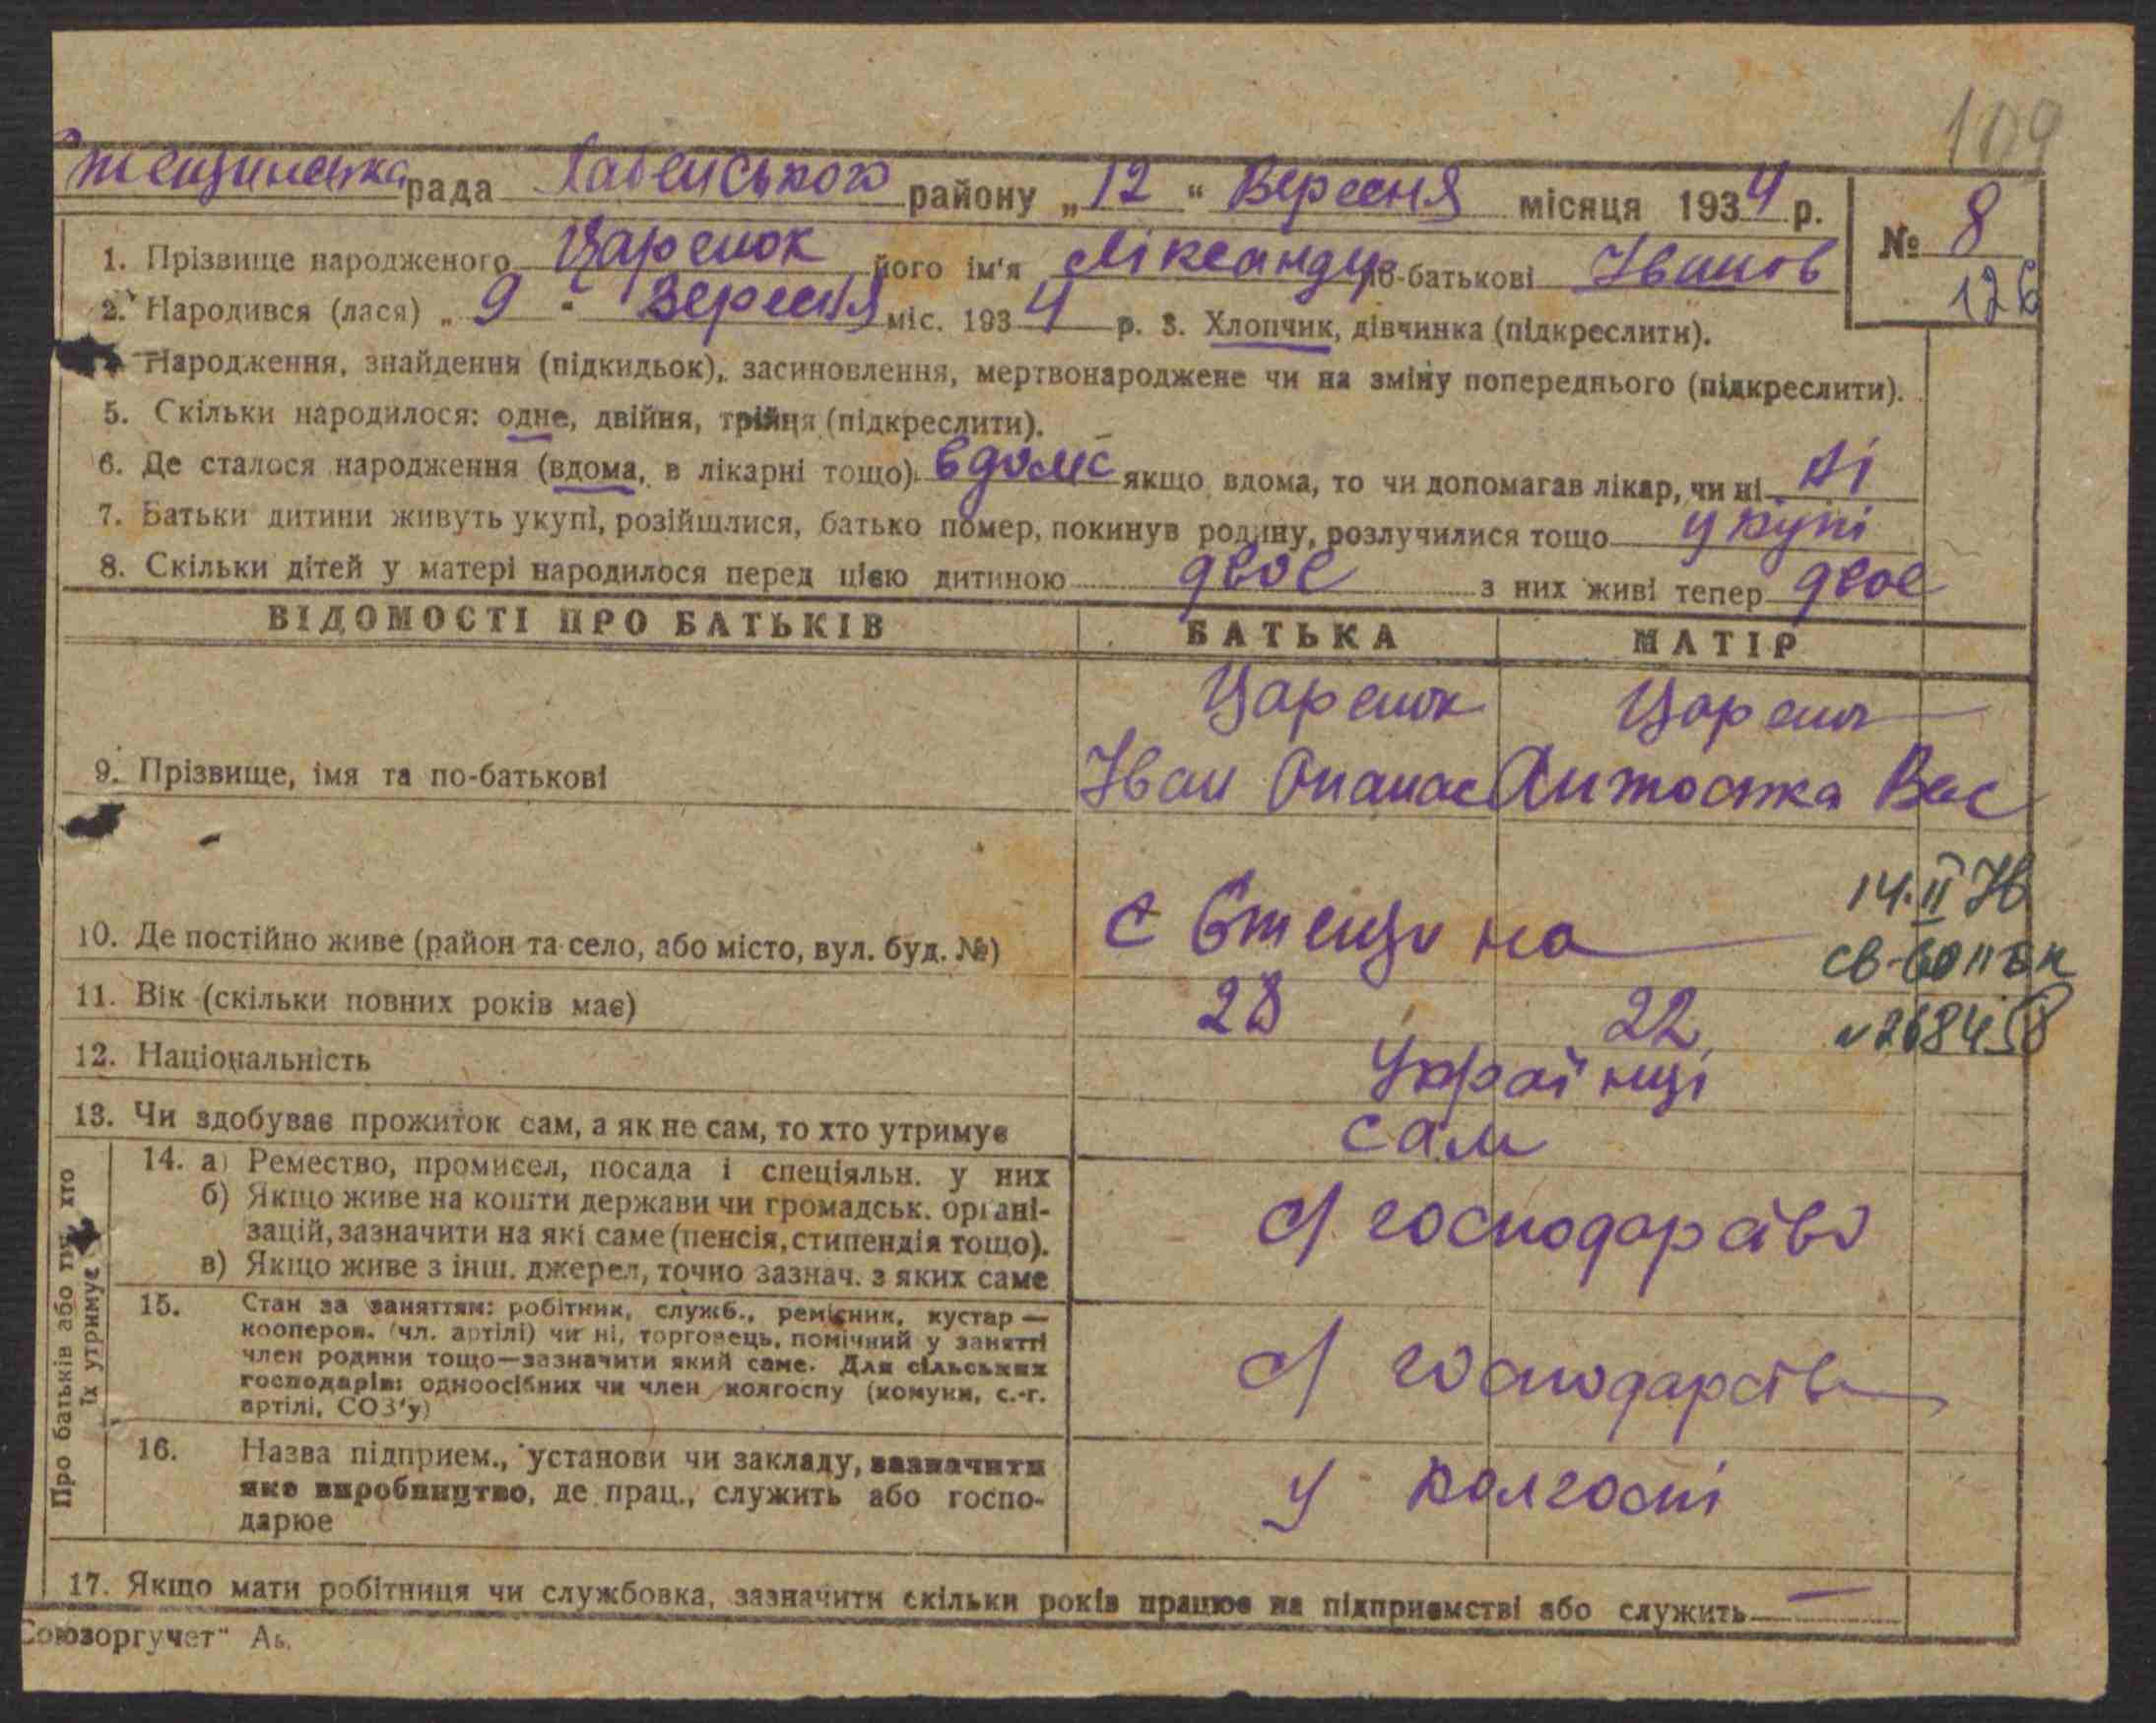 109
тещинська рада Лабенськок району „12“ Вересня місяця 1934 р.
№ 8
126
1. Прізвище народженого Царенок його ім'я Аліксандр по-батькові Іванов
2. Народився (лася) „9“ Вересня міс. 1934 р. 3. Хлопчик, дівчинка (підкреслити).
Народження, знайдення (підкидьок), засиновлення, мертвонароджене чи на зміну попереднього (підкреслити).
5. Скільки народилося: одне, двійня, трійня (підкреслити).
6. Де сталося народження (вдома, в лікарні тощо) вдома якщо вдома, то чи допомагав лікар, чи ні Ні
7. Батьки дитини живуть укупі, розійшлися, батько помер, покинув родину, розлучилися тощо укупі
8. Скільки дітей у матері народилося перед цією дитиною двое з них живі тепер двое
ВІДОМОСТІ ПРО БАТЬКІВ БАТЬКА МАТІР
Царенок Царенок
9. Прізвище, імя та по-батькові Іван Опанас Хитостка Вас
14.II
10. Де постійно живе (район та село, або місто, вул. буд. №) с Стещина
11. Вік (скільки повних років має) 28 22
12. Національність Українці
13. Чи здобуває прожиток сам, а як не сам, то хто утримує сам
Про батьків або про хто їх утримує
14. а) Ремество, промисел, посада і спеціяльн. у них
б) Якщо живе на кошти держави чи громадськ. органі-
зацій, зазначити на які саме (пенсія, стипендія тощо).
в) Якщо живе з інш. джерел, точно зазнач. з яких саме
с/ господарство
15. Стан за заняттям: робітник, служб., ремісник, кустар —
кооперов. (чл. артілі) чи ні, торговець, помічний у занятті
член родини тощо—зазначити який саме. Для сільських
господарів: одноосібних чи член колгоспу (комуни, с.-г.
артілі, СОЗ'у)
с/ господарств
16. Назва підприєм., установи чи закладу, зазначити
яке виробництво, де прац., служить або госпо-
дарює
у колгоспі
17. Якщо мати робітниця чи службовка, зазначити скільки років працює на підприємстві або служить —
Союзоргучет"